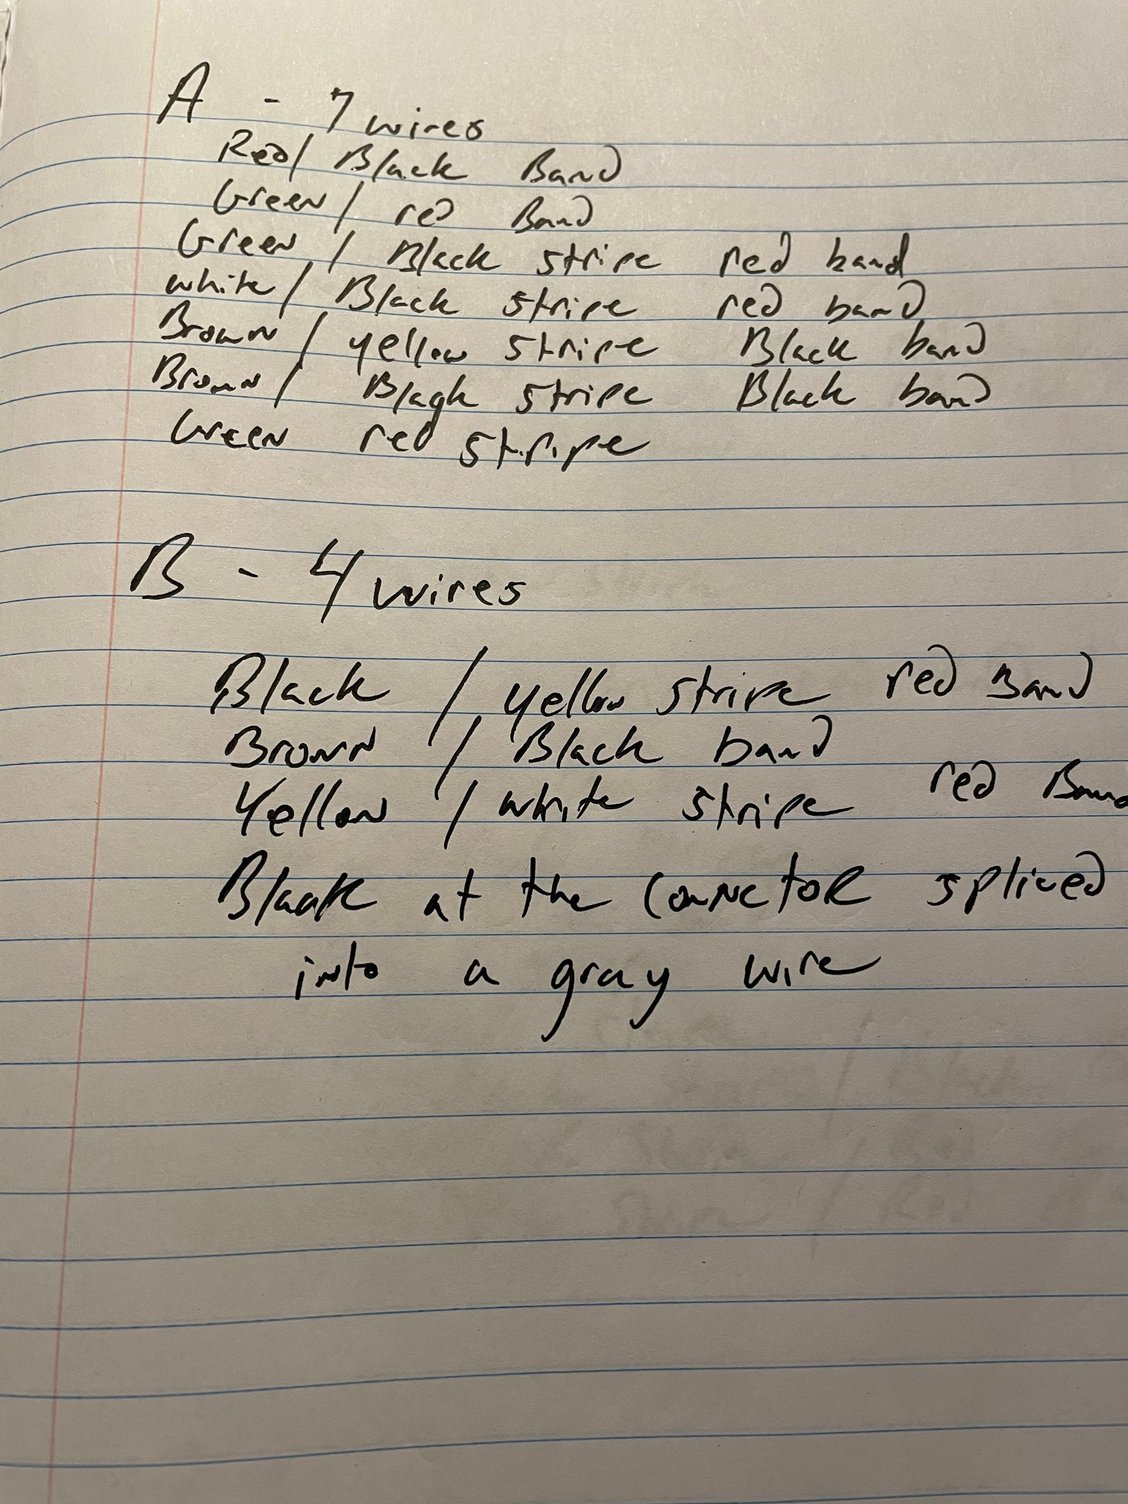 A - 7 wires
Red/ Black Band
Green/ red Band
Green / Black stripe red band
white/ Black stripe red band
Brown / yellow stripe Black band
Brown/ Black stripe Black band
Green red stripe
B - 4 wires
Black / yellow stripe red Band
Brown / Black band
Yellow / white stripe red Band
Black at the connctor spliced
into a gray wire